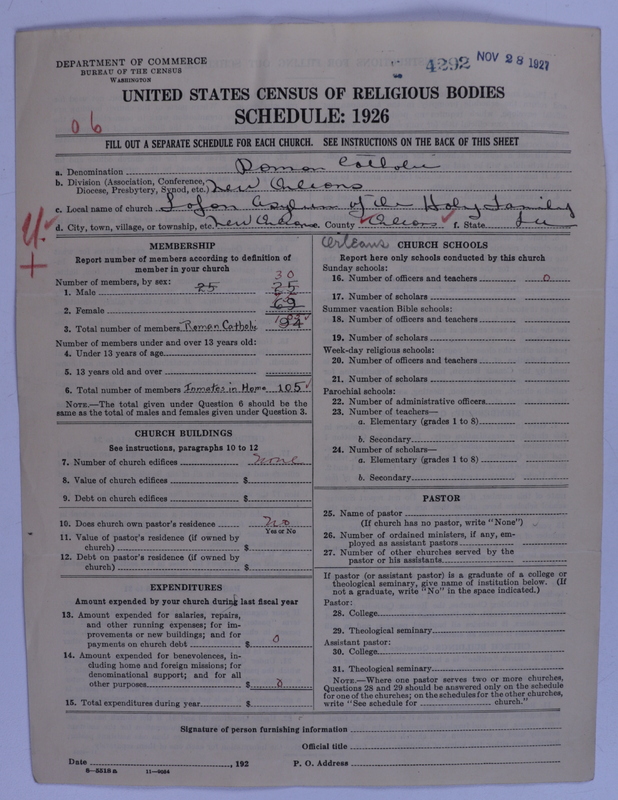 4292 NOV 28 1927
DEPARTMENT OF COMMERCE
BUREAU OF THE CENSUS
WASHINGTON
UNITED STATES CENSUS OF RELIGIOUS BODIES
SCHEDULE: 1926
06
FILL OUT A SEPARATE SCHEDULE FOR EACH CHURCH. SEE INSTRUCTIONS ON THE BACK OF THIS SHEET
a. Denomination Roman Catholic
b. Division (Association, Conference, Diocese, Presbytery, Synod, etc.) New Orleans
c. Local name of church Lafon Asylum of the Holy Family
d. City, town, village, or township, etc. New Orleans County Orleans f. State La
Orleans
MEMBERSHIP
Report number of members according to definition of
member in your church
30
Number of members, by sex:
1. Male 25 25
2. Female 69
3. Total number of members Roman Catholic 94
Number of members under and over 13 years old:
4. Under 13 years of age
5. 13 years old and over
6. Total number of members Inmates in Home 105
NOTE.—The total given under Question 6 should be the
same as the total of males and females given under Question 3.
CHURCH BUILDINGS
See instructions, paragraphs 10 to 12
7. Number of church edifices none
8. Value of church edifices $
9. Debt on church edifices $
10. Does church own pastor's residence No
Yes or No
11. Value of pastor's residence (if owned by
church) $
12. Debt on pastor's residence (if owned by
church) $
EXPENDITURES
Amount expended by your church during last fiscal year
13. Amount expended for salaries, repairs,
and other running expenses; for im-
provements or new buildings; and for
payments on church debt $ 0
14. Amount expended for benevolences, in-
cluding home and foreign missions; for
denominational support; and for all
other purposes $ 0
15. Total expenditures during year $
CHURCH SCHOOLS
Report here only schools conducted by this church
Sunday schools:
16. Number of officers and teachers 0
17. Number of scholars
Summer vacation Bible schools:
18. Number of officers and teachers
19. Number of scholars
Week-day religious schools:
20. Number of officers and teachers
21. Number of scholars
Parochial schools:
22. Number of administrative officers
23. Number of teachers—
a. Elementary (grades 1 to 8)
b. Secondary
24. Number of scholars—
a. Elementary (grades 1 to 8)
b. Secondary
PASTOR
25. Name of pastor
(If church has no pastor, write "None")
26. Number of ordained ministers, if any, em-
ployed as assistant pastors
27. Number of other churches served by the
pastor or his assistants
If pastor (or assistant pastor) is a graduate of a college or
theological seminary, give name of institution below. (If
not a graduate, write "No" in the space indicated.)
Pastor:
28. College
29. Theological seminary
Assistant pastor:
30. College
31. Theological seminary
NOTE.—Where one pastor serves two or more churches,
Questions 28 and 29 should be answered only on the schedule
for one of the churches; on the schedules for the other churches,
write "See schedule for church."
Signature of person furnishing information
Official title
Date , 192 P. O. Address
8—5518a 11—9034